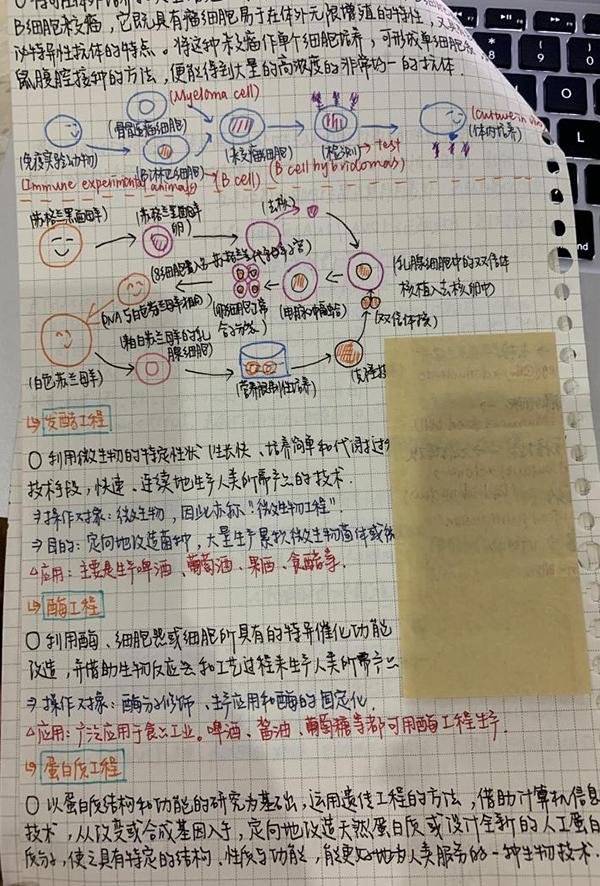 B细胞杂瘤，它既具有瘤细胞易于在体外无限增殖的特性，又
特异性抗体的特点。将这种杂瘤作单个细胞培养，可形成单细胞
鼠腹腔接种的方法，便能得到大量的高浓度的非常均一的抗体.
(Myeloma cell)
(骨髓瘤细胞)
(免疫实验动物)
(B淋巴细胞)
(杂交瘤细胞)
(检测)
test
(体内培养)
(Immune experimental animals)
(B cell)
(B cell hybridomas)
(苏格兰黑面母羊)
(苏格兰黑面母羊卵)
(去核)
(乳腺细胞中的双倍体核植入去核卵中)
(双倍体核)
(白色芬兰母羊)
(营养限制性培养)
发酵工程
○ 利用微生物的特定性状(生长快、培养简单和代谢过
技术手段，快速、连续地生产人类所需产品的技术.
⇒操作对象：微生物，因此亦称"微生物工程".
⇒目的：定向地改造菌种，大量生产累积微生物菌体或
△应用：主要是生产啤酒、葡萄酒、果酒、食醋等.
酶工程
○ 利用酶、细胞器或细胞所具有的特异催化功能
改造，并借助生物反应器和工艺过程来生产人类所需产品
⇒ 操作对象：酶分子修饰、生产应用和酶的固定化.
△应用：广泛应用于食品工业。啤酒、酱油、葡萄糖等都可用酶工程生产.
蛋白质工程
○ 以蛋白质结构和功能的研究为基础，运用遗传工程的方法，借助计算机信息
技术，从改变或合成基因入手，定向地改造天然蛋白质或设计全新的人工蛋白
质分子，使之具有特定的结构、性质与功能，能更好地为人类服务的一种生物技术.